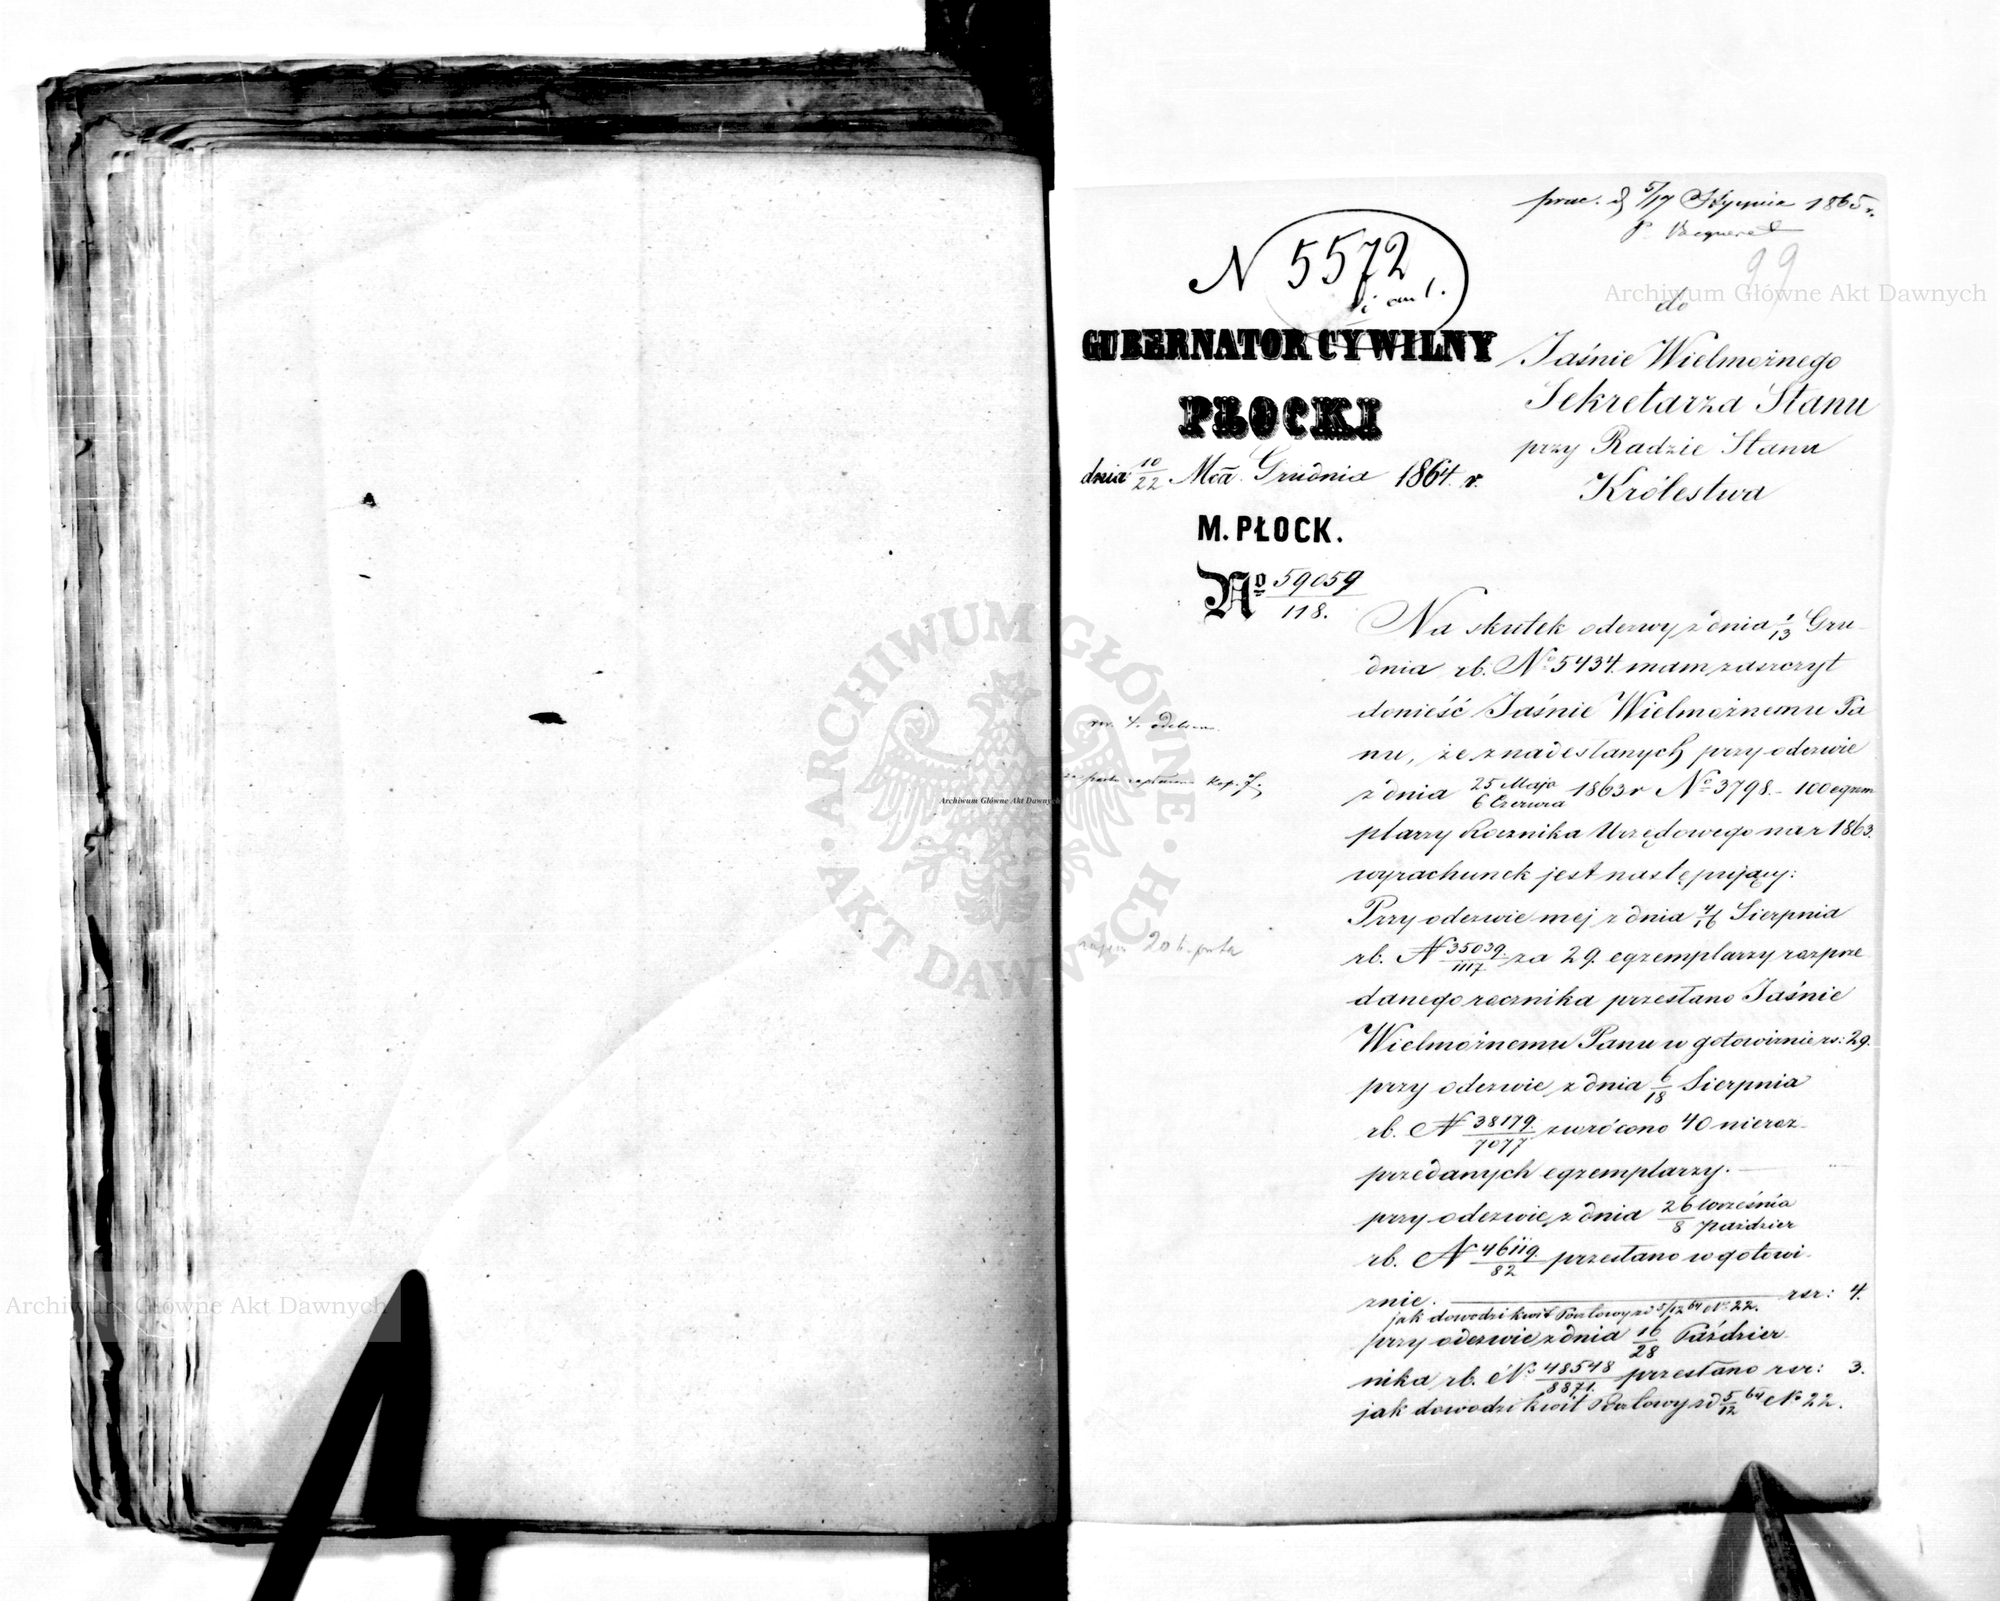 prac. d 5/17 Stycznia 1865 r.
N 5572
99
do
GUBERNATOR CYWILNY
PŁOCKI
dnia 10/22 Mca Grudnia 1864 r.
M. PŁOCK.
No 59059/118.
Jaśnie Wielmożnego
Sekretarza Stanu
przy Radzie Stanu
Królestwa
Na skutek odezwy z dnia 1/13 Gru-
dnia rb. No 5434. mam zaszczyt
donieść Jaśnie Wielmożnemu Pa
nu, że z nadesłanych przy odezwie
z dnia 25 Maja/6 Czerwca 1863 r No 3798. - 100 egzem
plarzy Rocznika Urzędowego na r 1863.
wyrachunek jest następujący:
Przy odezwie mej z dnia 4/16 Sierpnia
rb. N 35039./1117 za 29. egzemplarzy rozprze
danego rocznika przesłano Jaśnie
Wielmożnemu Panu w gotowiznie rs: 29.
przy odezwie z dnia 6/18 Sierpnia
rb. N 38179./7077 zwrócono 40 nieroz-
przedanych egzemplarzy.
przy odezwie z dnia 26 Września/8 Paździer
rb. N 46119./82 przesłano w gotowi-
znie. rsr: 4.
jak dowodzi kwit Pocztowy z d 5/12 64 No 22.
przy odezwie z dnia 16/28 Paździer-
nika rb. No 48548/8871. przesłano rsr: 3.
jak dowodzi kwit Pocztowy z d 5/12 64 No 22.
kop. 7.
20 k.
Archiwum Główne Akt Dawnych
Archiwum Główne Akt Dawnych
Archiwum Główne Akt Dawnych
ARCHIWUM GŁÓWNE
AKT DAWNYCH